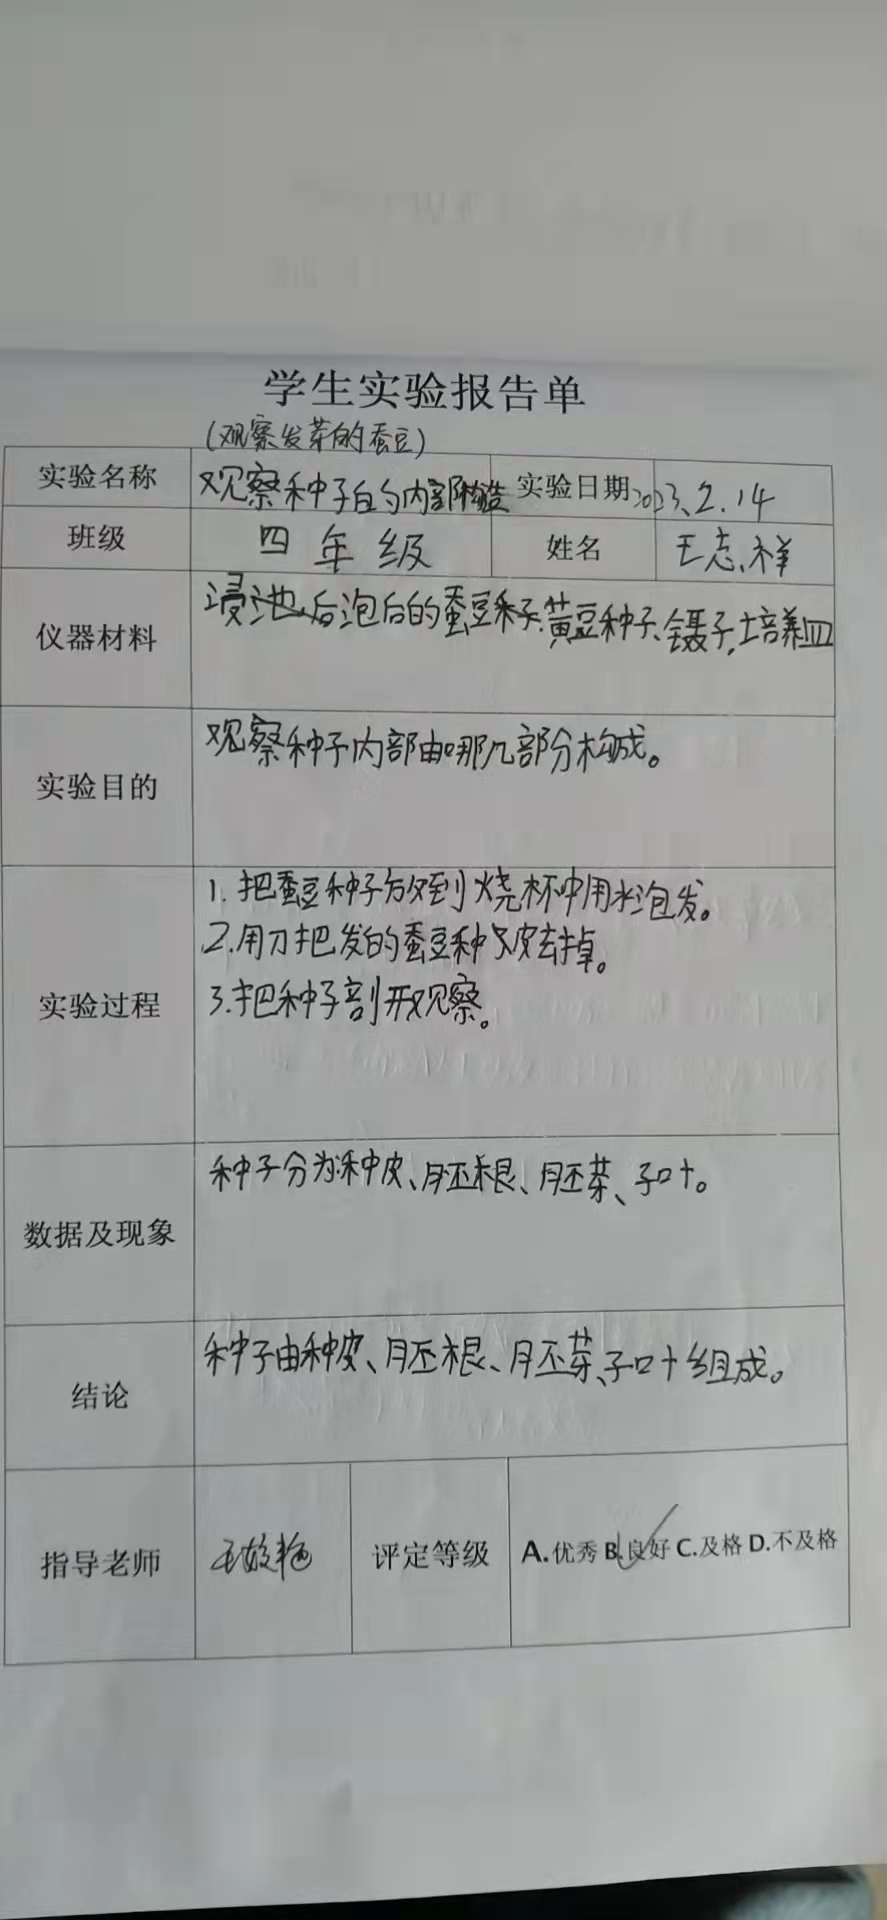 学生实验报告单
(观察发芽的蚕豆)
实验名称 观察种子的内部构造 实验日期 2023.2.14
班级 四年级 姓名 王志祥
仪器材料 浸池后泡后的蚕豆种子、黄豆种子、镊子,培养皿
实验目的 观察种子内部由哪几部分构成。
实验过程
1. 把蚕豆种子放到烧杯中用水泡发。
2.用刀把发的蚕豆种皮去掉。
3.把种子剖开观察。
数据及现象 种子分为种皮、胚根、胚芽、子叶。
结论 种子由种皮、胚根、胚芽、子叶组成。
指导老师 评定等级 A.优秀 B.良好 C.及格 D.不及格